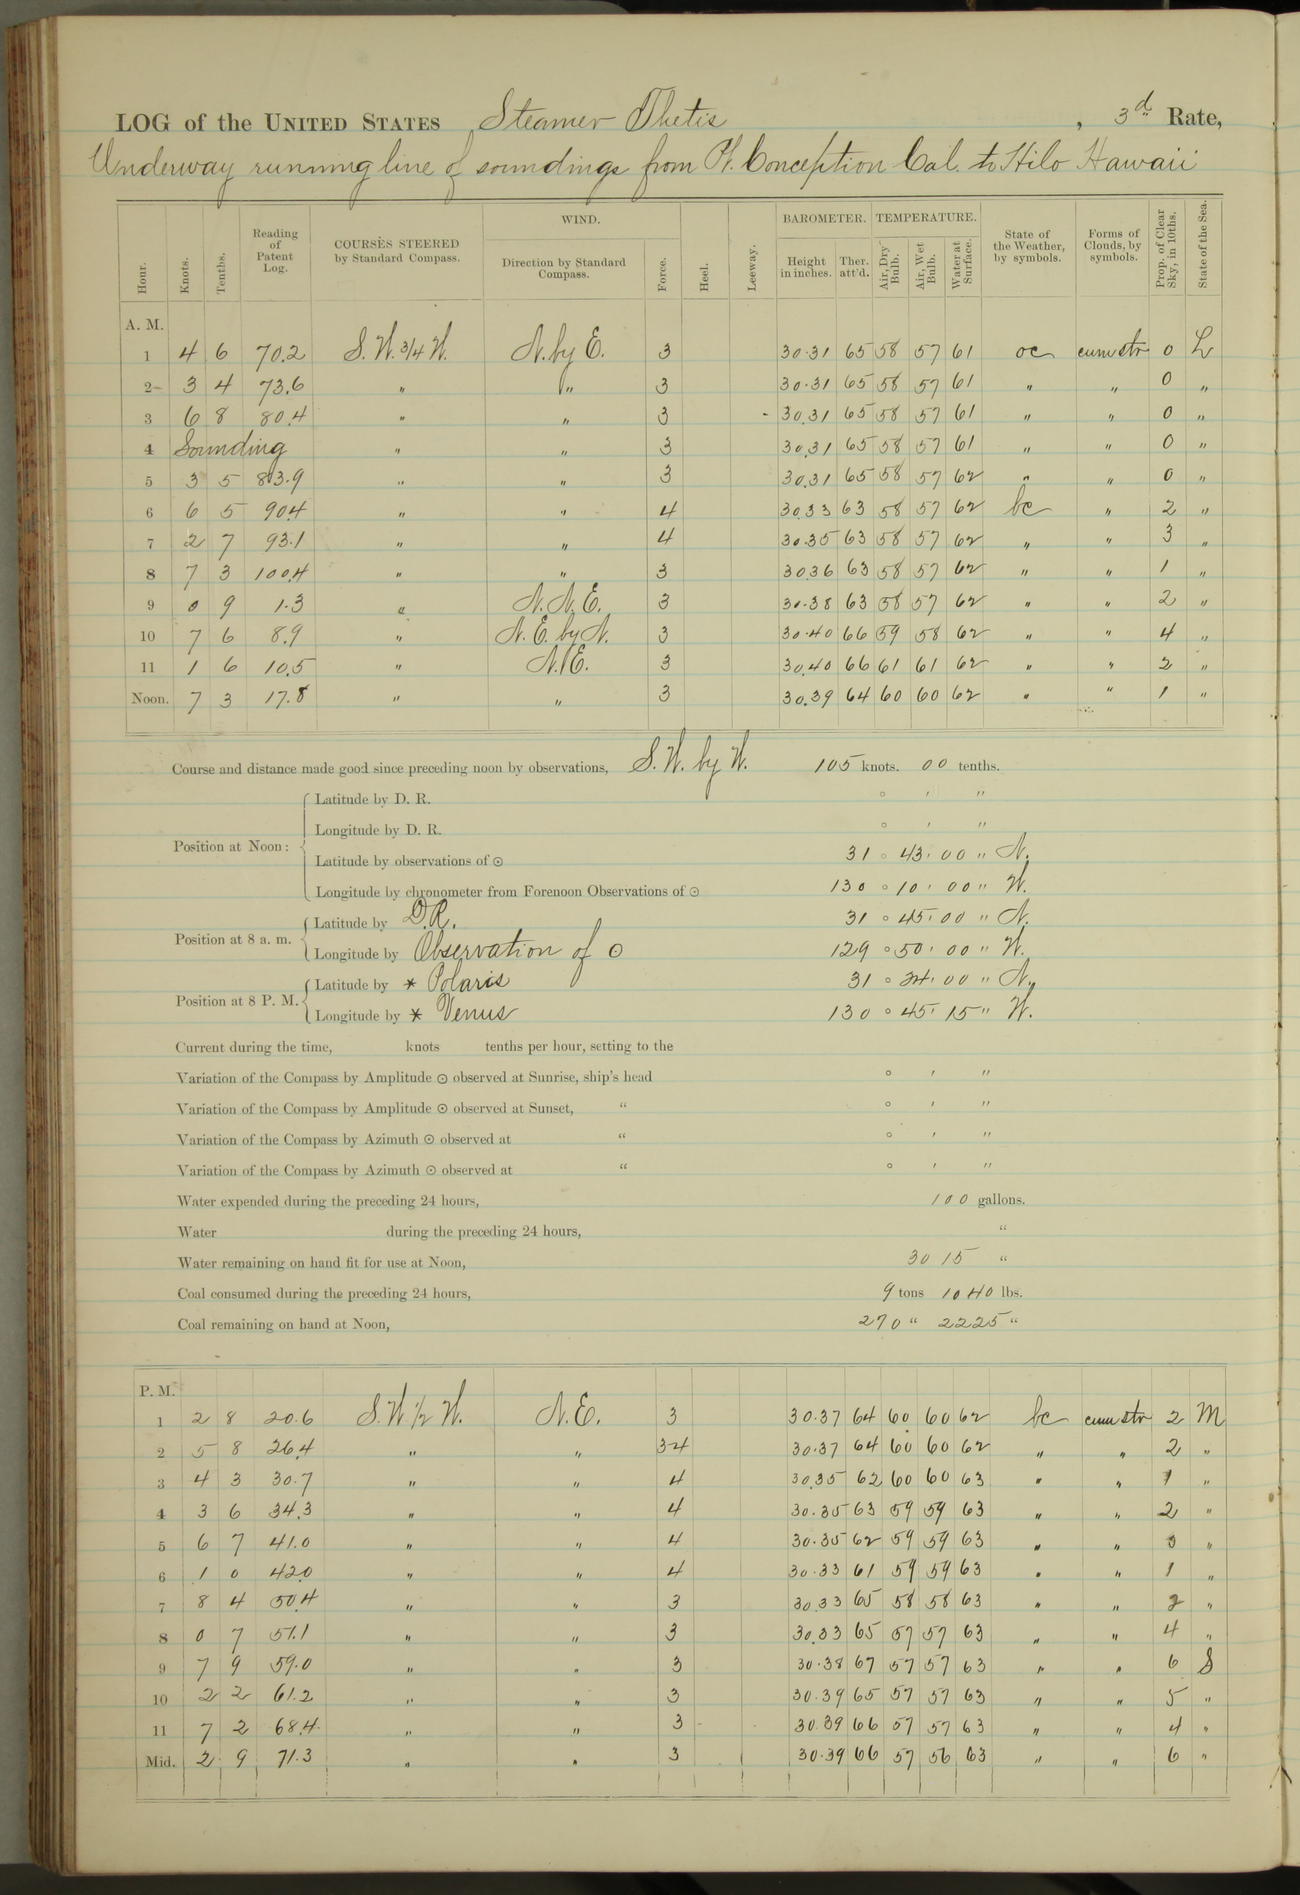 LOG of the UNITED STATES Steamer Thetis , 3d Rate,
Underway running line of soundings from Pt. Conception Cal. to Hilo Hawaii
Hour. Knots. Tenths. Reading of Patent Log. COURSES STEERED by Standard Compass. WIND. Direction by Standard Compass. Force. Heel. Leeway. BAROMETER. Height in inches. Ther. att'd. TEMPERATURE. Air, Dry Bulb. Air, Wet Bulb. Water at Surface. State of the Weather, by symbols. Forms of Clouds, by symbols. Prop. of Clear Sky, in 10ths. State of the Sea.
A. M.
1 4 6 70.2 S. W. 3/4 W. N. by E. 3 30.31 65 58 57 61 oc cum str 0 L
2 3 4 73.6 " " 3 30.31 65 58 57 61 " " 0 "
3 6 8 80.4 " " 3 30.31 65 58 57 61 " " 0 "
4 Sounding " " 3 30.31 65 58 57 61 " " 0 "
5 3 5 83.9 " " 3 30.31 65 58 57 62 " " 0 "
6 6 5 90.4 " " 4 30.33 63 58 57 62 bc " 2 "
7 2 7 93.1 " " 4 30.35 63 58 57 62 " " 3 "
8 7 3 100.4 " " 3 30.36 63 58 57 62 " " 1 "
9 0 9 1.3 " N. N. E. 3 30.38 63 58 57 62 " " 2 "
10 7 6 8.9 " N. E. by N. 3 30.40 66 59 58 62 " " 4 "
11 1 6 10.5 " N. E. 3 30.40 66 61 61 62 " " 2 "
Noon. 7 3 17.8 " " 3 30.39 64 60 60 62 " " 1 "
Course and distance made good since preceding noon by observations, S. W. by W. 105 knots. 00 tenths.
Latitude by D. R. ° ′ ″
Longitude by D. R. ° ′ ″
Position at Noon:
Latitude by observations of ☉ 31 ° 43 ′ 00 ″ N.
Longitude by chronometer from Forenoon Observations of ☉ 130 ° 10 ′ 00 ″ W.
Latitude by D.R. 31 ° 45 ′ 00 ″ N.
Position at 8 a. m.
Longitude by Observation of ☉ 129 ° 50 ′ 00 ″ W.
Latitude by * Polaris 31 ° 24 ′ 00 ″ N.
Position at 8 P. M.
Longitude by * Venus 130 ° 45 ′ 15 ″ W.
Current during the time, knots tenths per hour, setting to the
Variation of the Compass by Amplitude ☉ observed at Sunrise, ship's head ° ′ ″
Variation of the Compass by Amplitude ☉ observed at Sunset, " ° ′ ″
Variation of the Compass by Azimuth ☉ observed at " ° ′ ″
Variation of the Compass by Azimuth ☉ observed at " ° ′ ″
Water expended during the preceding 24 hours, 100 gallons.
Water during the preceding 24 hours, "
Water remaining on hand fit for use at Noon, 3015 "
Coal consumed during the preceding 24 hours, 9 tons 1040 lbs.
Coal remaining on hand at Noon, 270 " 2225 "
P. M.
1 2 8 20.6 S. W. 1/2 W. N. E. 3 30.37 64 60 60 62 bc cum str 2 M
2 5 8 26.4 " " 3-4 30.37 64 60 60 62 " " 2 "
3 4 3 30.7 " " 4 30.35 62 60 60 63 " " 1 "
4 3 6 34.3 " " 4 30.35 63 59 59 63 " " 2 "
5 6 7 41.0 " " 4 30.35 62 59 59 63 " " "
6 1 0 42.0 " " 4 30.33 61 59 59 63 " " 1 "
7 8 4 50.4 " " 3 30.33 65 58 58 63 " " 2 "
8 0 7 51.1 " " 3 30.33 65 57 57 63 " " 4 "
9 7 9 59.0 " " 3 30.38 67 57 57 63 " " 6 S
10 2 2 61.2 " " 3 30.39 65 57 57 63 " " 5 "
11 7 2 68.4 " " 3 30.39 66 57 57 63 " " 4 "
Mid. 2 9 71.3 " " 3 30.39 66 57 56 63 " " 6 "